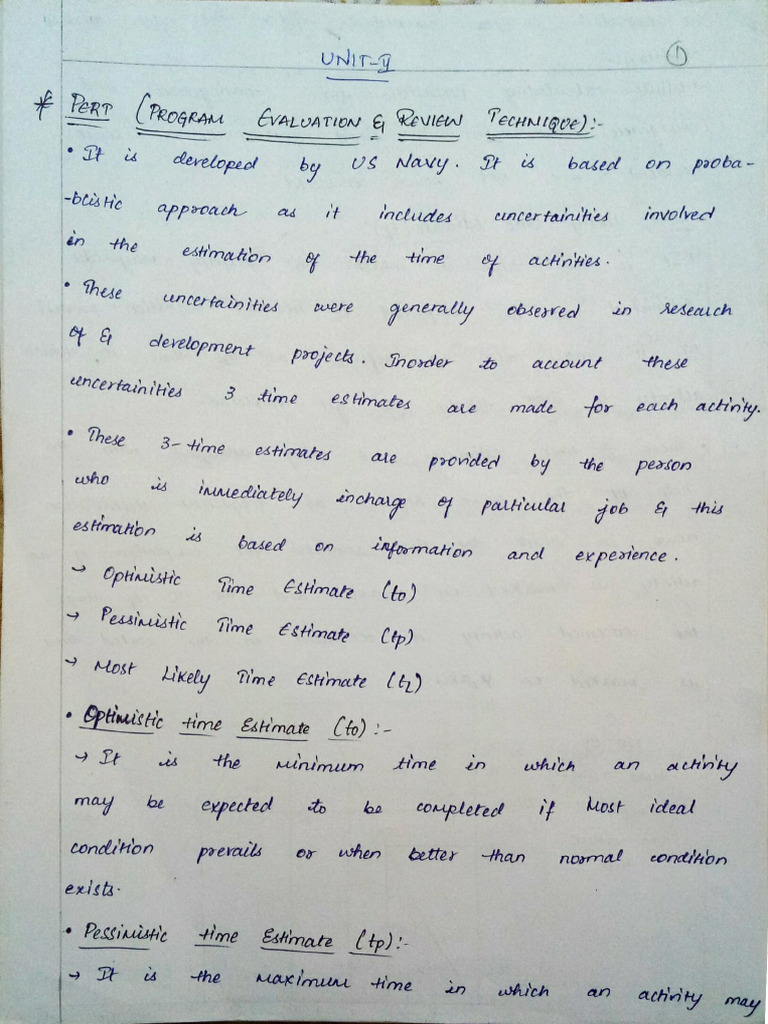 UNIT-II
①
* PERT (PROGRAM EVALUATION & REVIEW TECHNIQUE):-
• It is developed by US Navy. It is based on proba-
-blistic approach as it includes uncertainities involved
in the estimation of the time of activities.
• These uncertainities were generally observed in research
of & development projects. Inorder to account these
uncertainities 3 time estimates are made for each activity.
• These 3-time estimates are provided by the person
who is immediately incharge of particular job & this
estimation is based on information and experience.
→ Optimistic Time Estimate (to)
→ Pessimistic Time Estimate (tp)
→ Most Likely Time Estimate (tL)
• Optimistic time Estimate (to):-
→ It is the minimum time in which an activity
may be expected to be completed if Most ideal
condition prevails or when better than normal condition
exists.
• Pessimistic time Estimate (tp):-
→ It is the maximum time in which an activity may